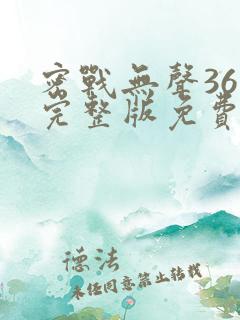 密戰無聲36
完整版免費
德法
未经同意禁止转载